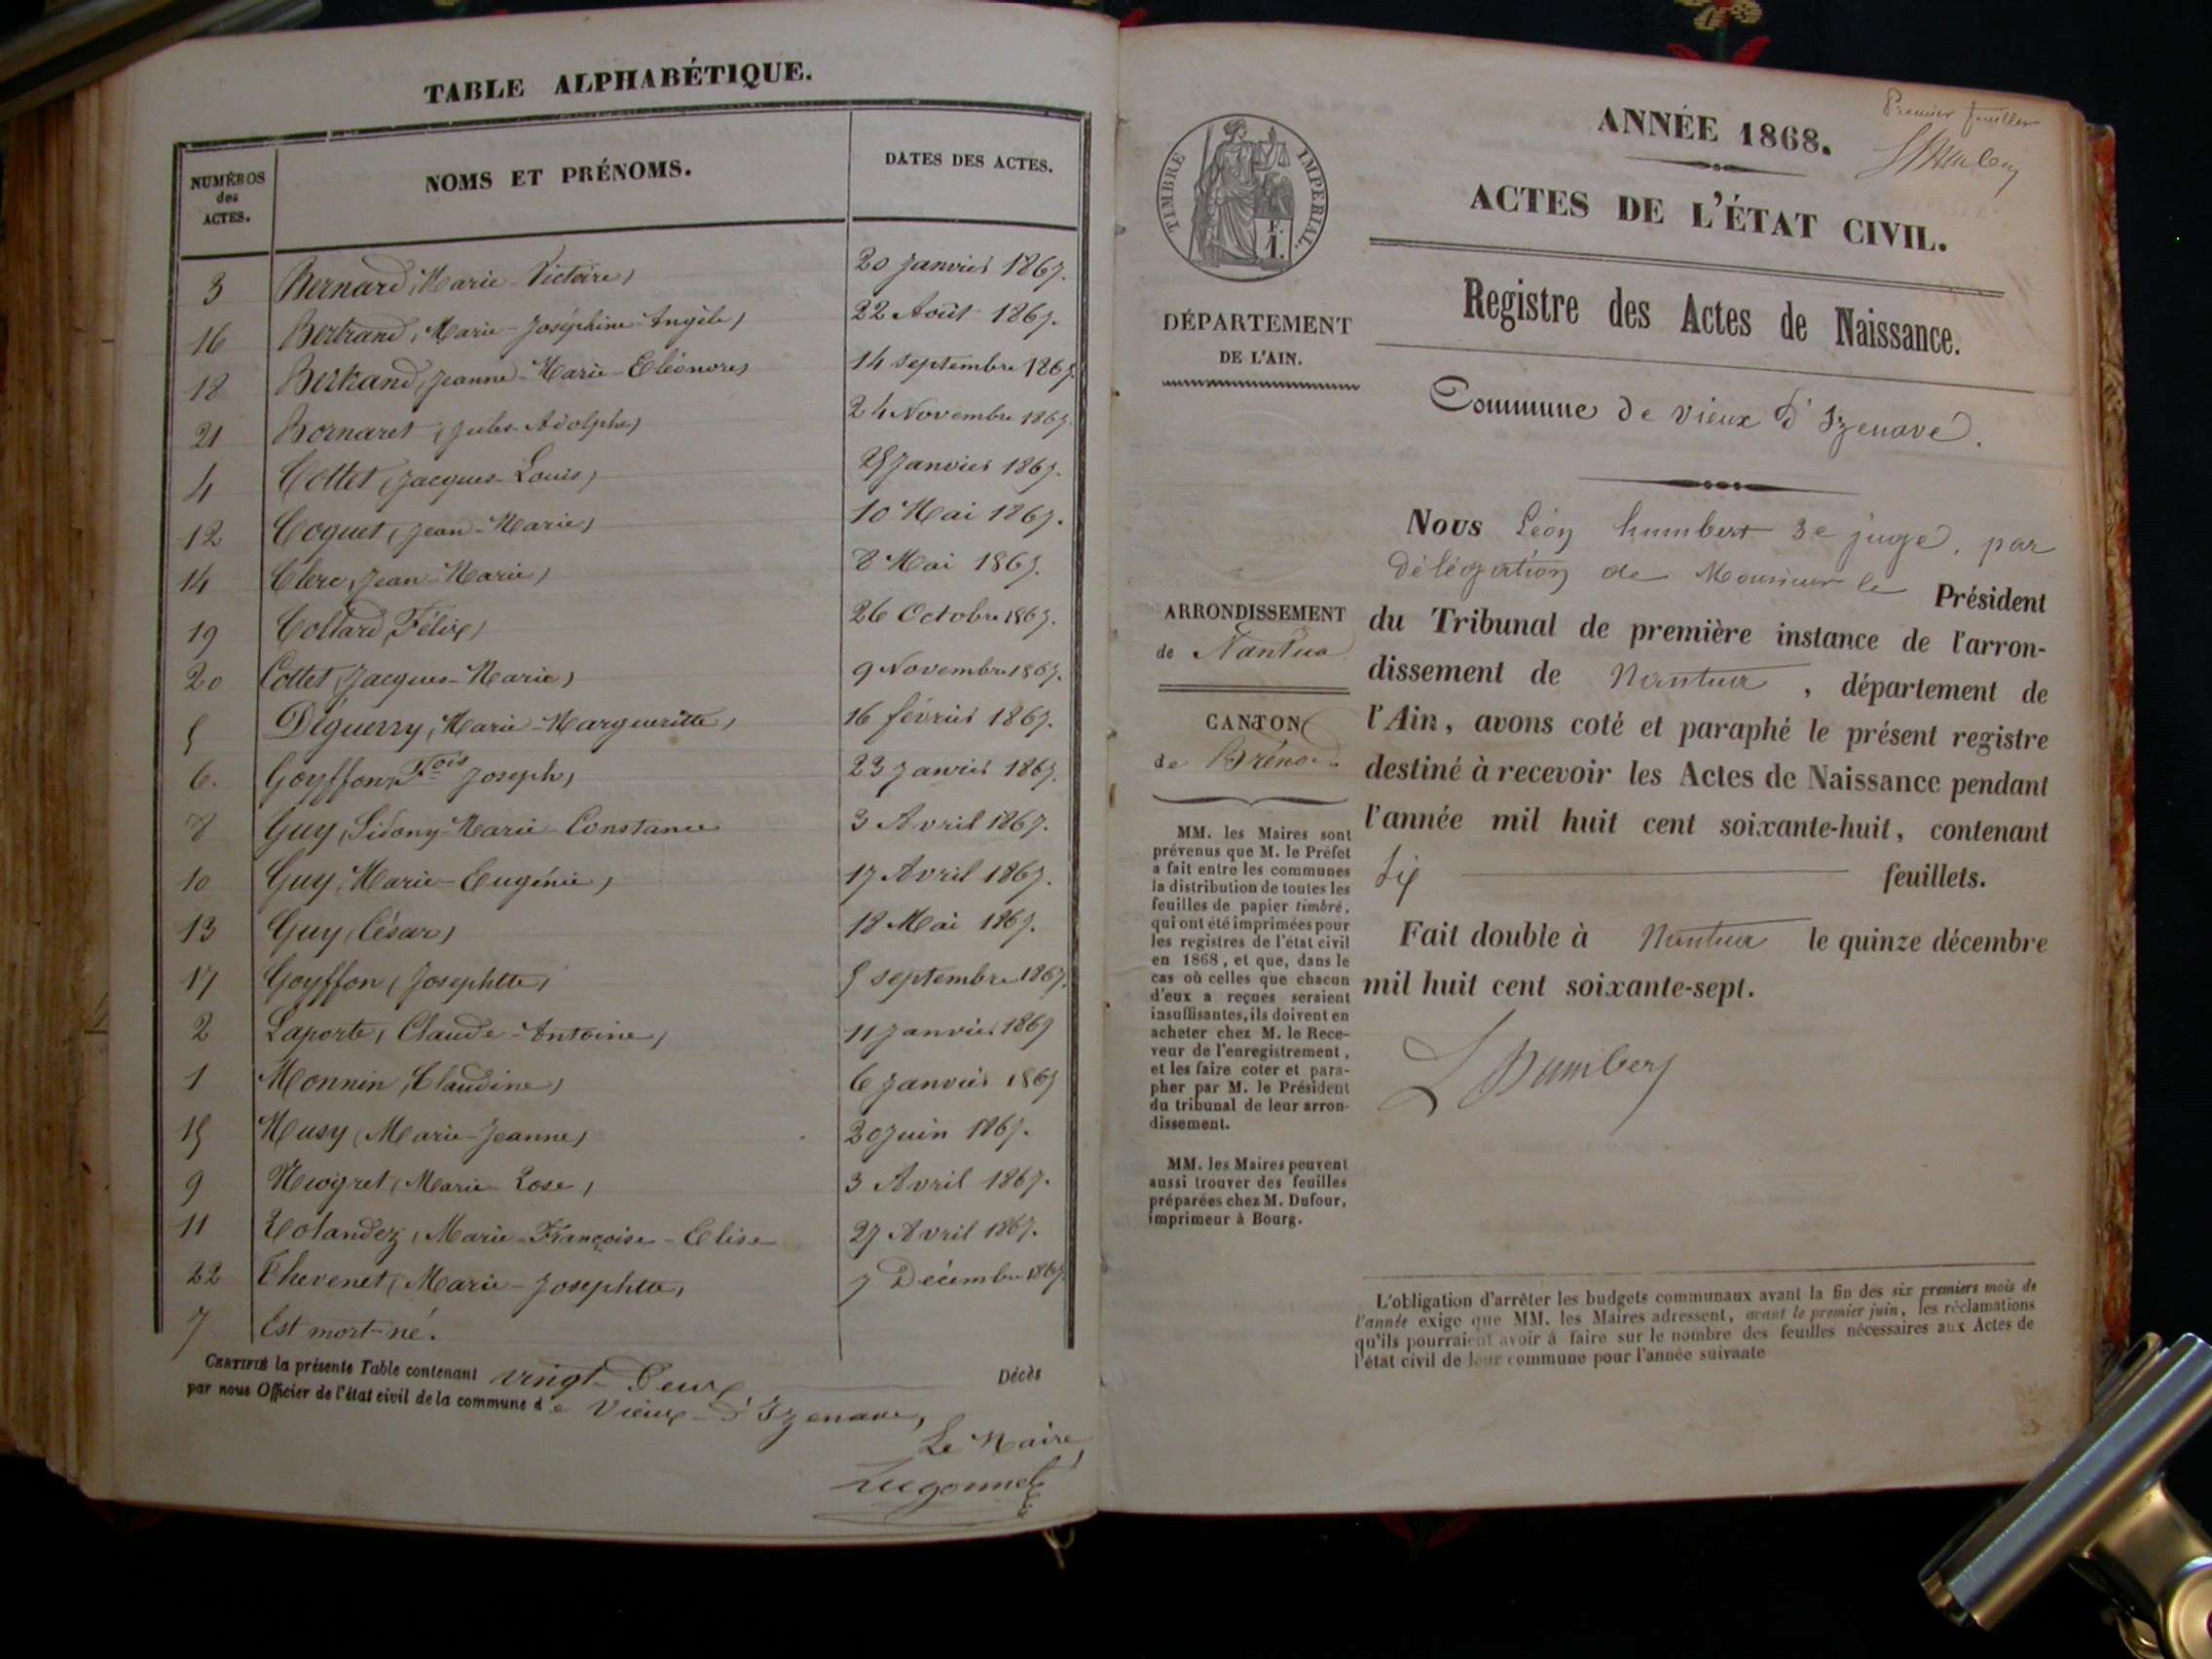 TABLE ALPHABÉTIQUE.
NUMÉROS des ACTES. NOMS ET PRÉNOMS. DATES DES ACTES.
3 Bernard, Marie-Victoire, 20 Janvier 1867.
16 Bertrand, Marie-Joséphine Angèle, 22 Août 1867.
18 Bertrand, Jeanne-Marie-Eléonore, 14 septembre 1867.
21 Bornaret, Jules-Adolphe, 24 Novembre 1867.
4 Cottet, Jacques-Louis, Janvier 1867.
12 Coquet, Jean-Marie, 10 Mai 1867.
14 Clerc, Jean-Marie, 8 Mai 1867.
19 Collard, Félix, 26 Octobre 1867.
20 Cottet, Jacques-Marie, 9 Novembre 1867.
5 Déguerry, Marie-Margueritte, 16 février 1867.
6. Goyffon, Fois Joseph, 23 Janvier 1867.
8 Guy, Sidony-Marie-Constance 3 Avril 1867.
10 Guy, Marie-Eugénie, 17 Avril 1867.
13 Guy, César, 18 Mai 1867.
17 Goyffon, Josephtte, 5 septembre 1867.
2 Laporte, Claude-Antoine, 11 Janvier 1867
1 Monnin, Claudine, 6 Janvier 1867
15 Musy, Marie-Jeanne, 20 Juin 1867.
9 Marie Rose, 3 Avril 1867.
11 Rolandez, Marie-Françoise-Elise 27 Avril 1867.
22 Thevenet, Marie-Josephtte, 7 Décembre 1867.
7 Est mort-né.
CERTIFIÉ la présente Table contenant vingt-Deux Décès
par nous Officier de l'état civil de la commune de Vieux-d'Izenave,
Le Maire,
Premier feuillet
ANNÉE 1868.
ACTES DE L'ÉTAT CIVIL.
TIMBRE IMPÉRIAL.
F.
1.
Registre des Actes de Naissance.
DÉPARTEMENT
DE L'AIN.
Commune de Vieux d'Izenave.
Nous Léon humbert 3e juge, par
délégation de Monsieur le Président
ARRONDISSEMENT
de Nantua
du Tribunal de première instance de l'arron-
dissement de Nantua, département de
CANTON
de Brénod.
l'Ain, avons coté et paraphé le présent registre
destiné à recevoir les Actes de Naissance pendant
l'année mil huit cent soixante-huit, contenant
Six feuillets.
Fait double à Nantua le quinze décembre
mil huit cent soixante-sept.
L Humbert
MM. les Maires sont
prévenus que M. le Préfet
a fait entre les communes
la distribution de toutes les
feuilles de papier timbré,
qui ont été imprimées pour
les registres de l'état civil
en 1868, et que, dans le
cas où celles que chacun
d'eux a reçues seraient
insuffisantes, ils doivent en
acheter chez M. le Rece-
veur de l'enregistrement,
et les faire coter et para-
pher par M. le Président
du tribunal de leur arron-
dissement.
MM. les Maires peuvent
aussi trouver des feuilles
préparées chez M. Dufour,
imprimeur à Bourg.
L'obligation d'arrêter les budgets communaux avant la fin des six premiers mois de
l'année exige que MM. les Maires adressent, avant le premier juin, les réclamations
qu'ils pourraient avoir à faire sur le nombre des feuilles nécessaires aux Actes de
l'état civil de leur commune pour l'année suivante